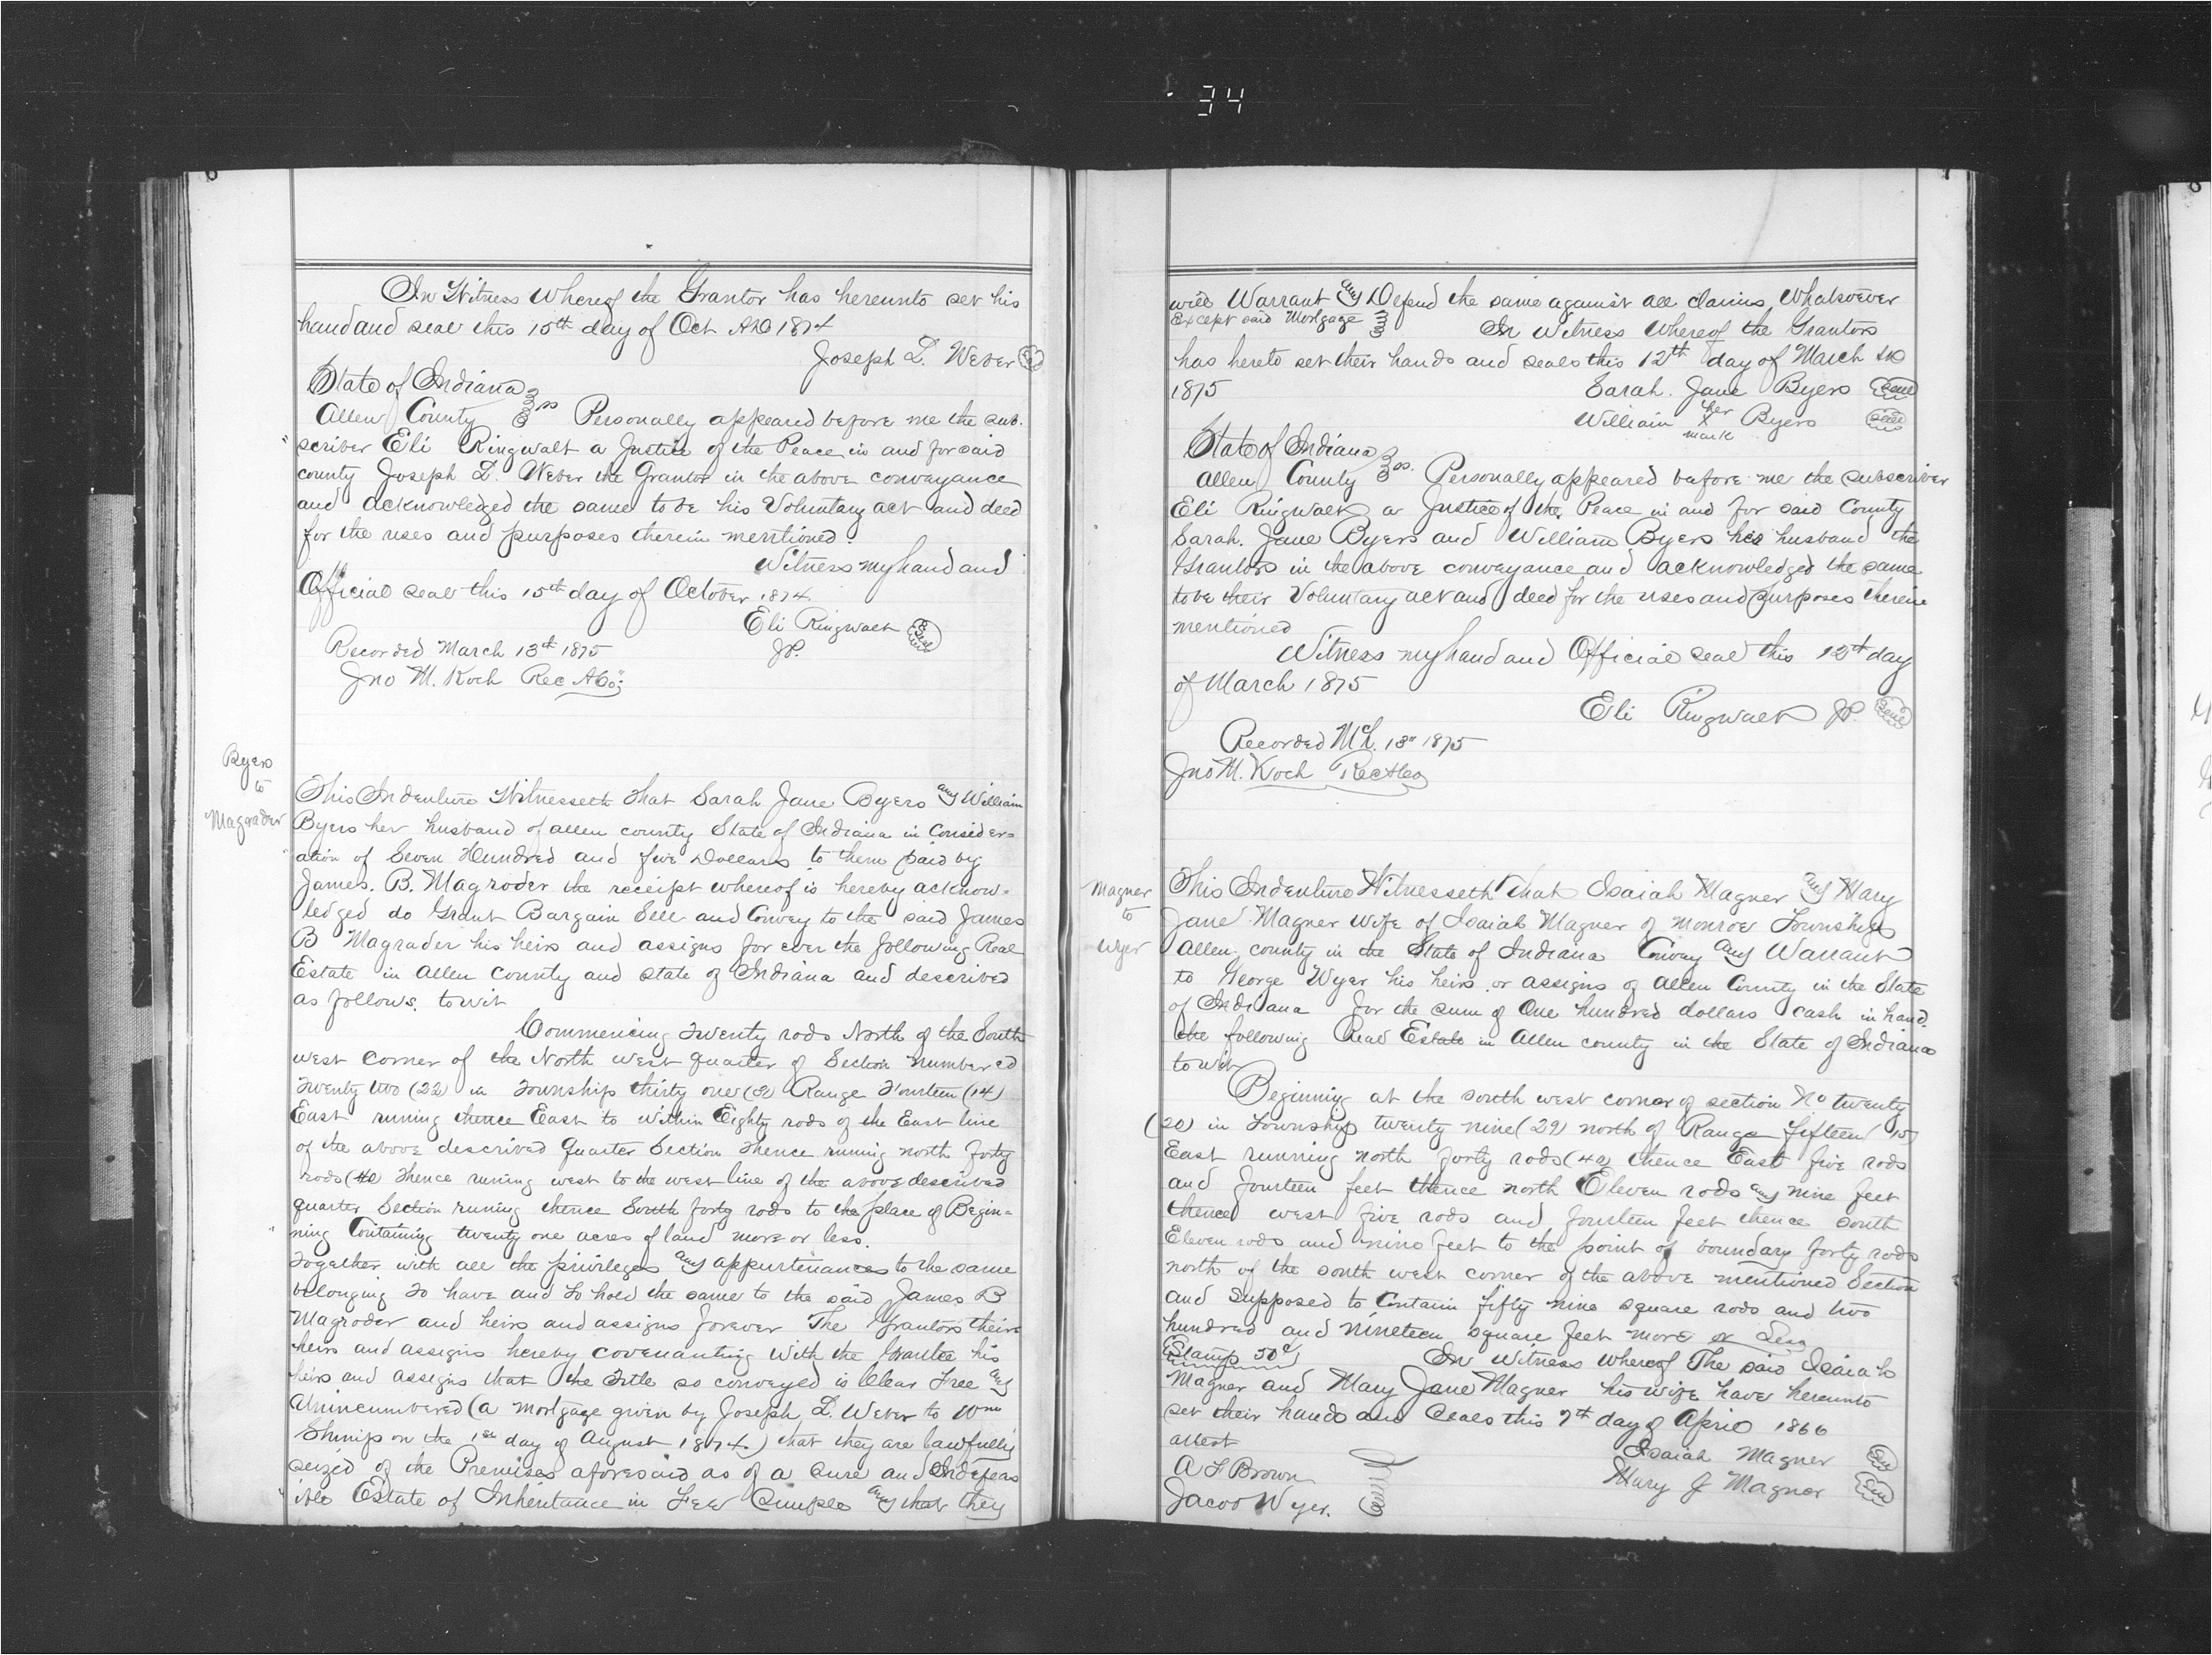 34
6
In Witness Whereof the Grantor has hereunto set his
hand and seal this 15th day of Oct AD 1874
Joseph L. Weber Seal
State of Indiana
Allen County ss Personally appeared before me the sub-
scriber Eli Ringwalt a Justice of the Peace in and for said
county Joseph L. Weber the Grantor in the above conveyance
and acknowledged the same to be his Voluntary act and deed
for the uses and purposes therein mentioned.
Witness my hand and
Official seal this 15th day of October 1874.
Eli Ringwalt Seal
JP.
Recorded March 13th 1875
Jno M. Koch Rec ACo;
Byers
to
Magrader
This Indenture Witnesseth That Sarah Jane Byers and William
Byers her husband of allen county State of Indiana in Consider=
ation of Seven Hundred and five Dollars to them paid by
James. B. Magroder the receipt whereof is hereby acknow-
ledged do Grant Bargain Sell and Convey to the said James
B Magrader his heirs and assigns for ever the following Real
Estate in Allen County and state of Indiana and described
as follows. towit
Commencing Twenty rods North of the South
west corner of the North west quarter of Section numbered
Twenty two (22) in Township thirty one (31) Range Fourteen (14)
East runing thence East to within Eighty rods of the East line
of the above described quarter Section Thence runing north forty
rods (40) Thence runing west to the west line of the above described
quarter Section runing thence South forty rods to the place of Begin=
ning Containing twenty one acres of land more or less.
Together with all the privileges and appurtenances to the same
belonging To have and to hold the same to the said James B
Magroder and heirs and assigns forever The Grantors their
heirs and assigns hereby covenanting With the Grantee his
heirs and assigns that the Title so conveyed is Clear Free and
Unincumbered (a mortgage given by Joseph L. Weber to Wm
on the 1st day of August 1874.) that they are lawfully
seized of the Premises aforesaid as of a Sure and Indefeas
ible Estate of Inheritance in Fee Simple and that they
7
will Warrant and Defend the same against all claims Whatsoever
Except said Mortgage In Witness Whereof the Grantors
has hereto set their hands and seals this 12th day of March AD
1875 Sarah. Jane Byers Seal
William her X mark Byers Seal
State of Indiana
Allen County ss. Personally appeared before me the subscriber
Eli Ringwalt a Justice of the Peace in and for said County
Sarah. Jane Byers and William Byers his husband the
Grantors in the above conveyance and acknowledged the same
to be their Voluntary act and deed for the uses and purposes therein
mentioned
Witness my hand and Official seal this 12th day
of March 1875
Eli Ringwalt JP. Seal
Recorded Mch. 13" 1875
Jno M. Koch Rec ACo
Magner
to
Wyer
This Indenture Witnesseth That Isaiah Magner and Mary
Jane Magner Wife of Isaiah Magner of Monroe Township
Allen county in the State of Indiana Convey and Warrant
to George Wyer his heirs or assigns of Allen County in the State
of Indiana for the sum of One hundred dollars cash in hand.
the following Real Estate in Allen county in the State of Indiana
to wit
Beginning at the south west corner of section No twenty
(20) in Township twenty nine (29) north of Range fifteen (15)
East running north forty rods (40) thence East five rods
and fourteen feet thence north Eleven rods and nine feet
thence west five rods and fourteen feet thence south
Eleven rods and nine feet to the point of boundary forty rods
north of the south west corner of the above mentioned Section
and Supposed to Contain fifty nine square rods and two
hundred and nineteen square feet more or Less
Stamp 50c In Witness whereof The said Isaiah
Magner and Mary Jane Magner his wife have hereunto
set their hands and Seals this 7th day of April 1866
attest Isaiah Magner Seal
A F Brown Mary J Magner Seal
Jacob Wyer.